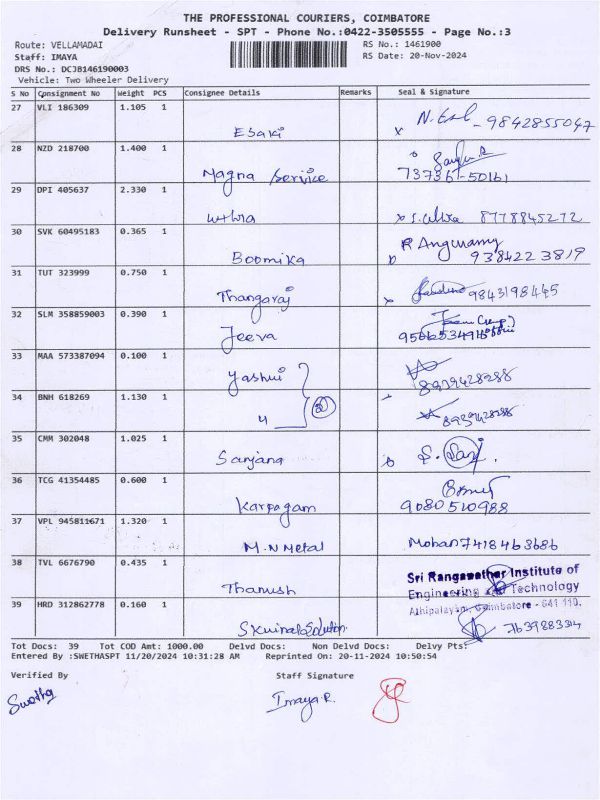 THE PROFESSIONAL COURIERS, COIMBATORE
Delivery Runsheet - SPT - Phone No.:0422-3505555 - Page No.:3
Route: VELLAMADAI RS No.: 1461900
Staff: IMAYA RS Date: 20-Nov-2024
DRS No.: DCJB146190003
Vehicle: Two Wheeler Delivery
S No Consignment No Weight PCS Consignee Details Remarks Seal & Signature
27 VLI 186309 1.105 1 Esaki x 9842855047
28 NZD 218700 1.400 1 Magna Service 737361-50161
29 DPI 405637 2.330 1 8778845272
30 SVK 60495183 0.365 1 Boomika 9384223819
31 TUT 323999 0.750 1 Thangaraj 9843198445
32 SLM 358859003 0.390 1 Jeeva
33 MAA 573387094 0.100 1 8939428288
34 BNH 618269 1.130 1 8939428288
35 CMM 302048 1.025 1 Sanjana
36 TCG 41354485 0.600 1 Karpagam 9080510988
37 VPL 945811671 1.320 1 M.N Metal Mohan 7418463686
38 TVL 6676790 0.435 1 Thanush
Sri Ranganathar Institute of
Engineering and Technology
Athipalayam, Coimbatore - 641 110.
39 HRD 312862778 0.160 1
Tot Docs: 39 Tot COD Amt: 1000.00 Delvd Docs: Non Delvd Docs: Delvy Pts:
Entered By :SWETHASPT 11/20/2024 10:31:28 AM Reprinted On: 20-11-2024 10:50:54
Verified By Staff Signature
Swetha Imaya R.